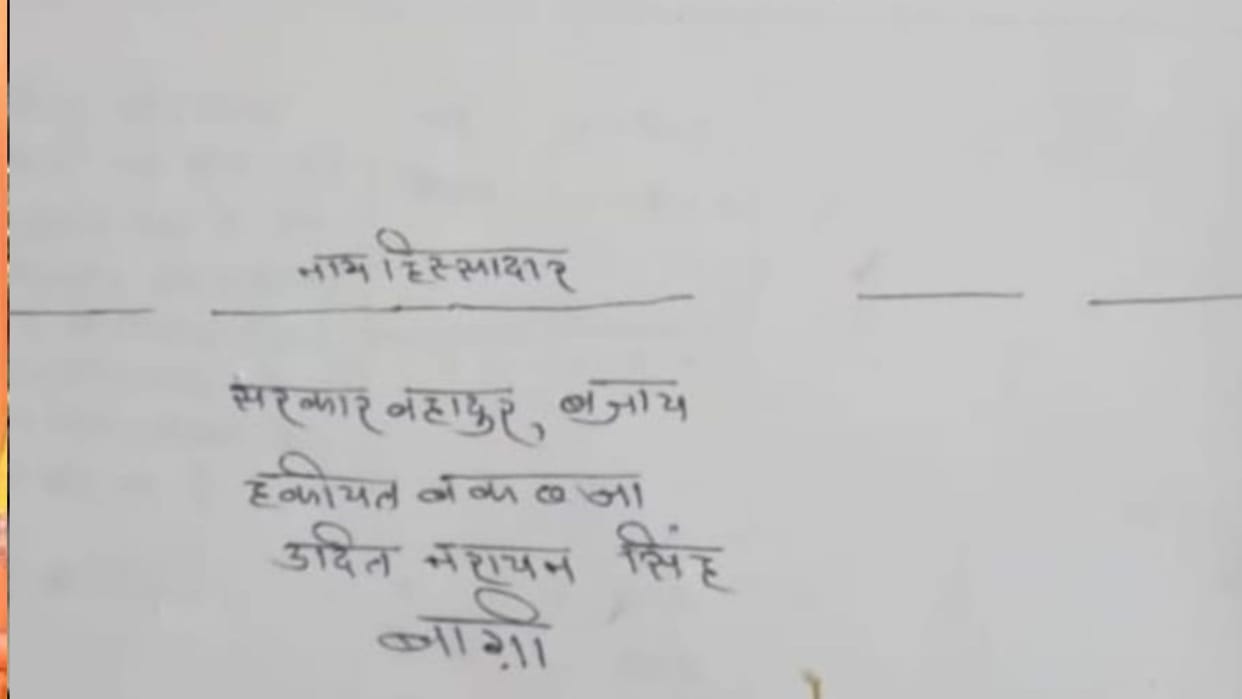 नाम हिस्सादार
सरकार बहादुर, बजाय
हकीयत बकब्जा
उदित नरायन सिंह
बाग़ी